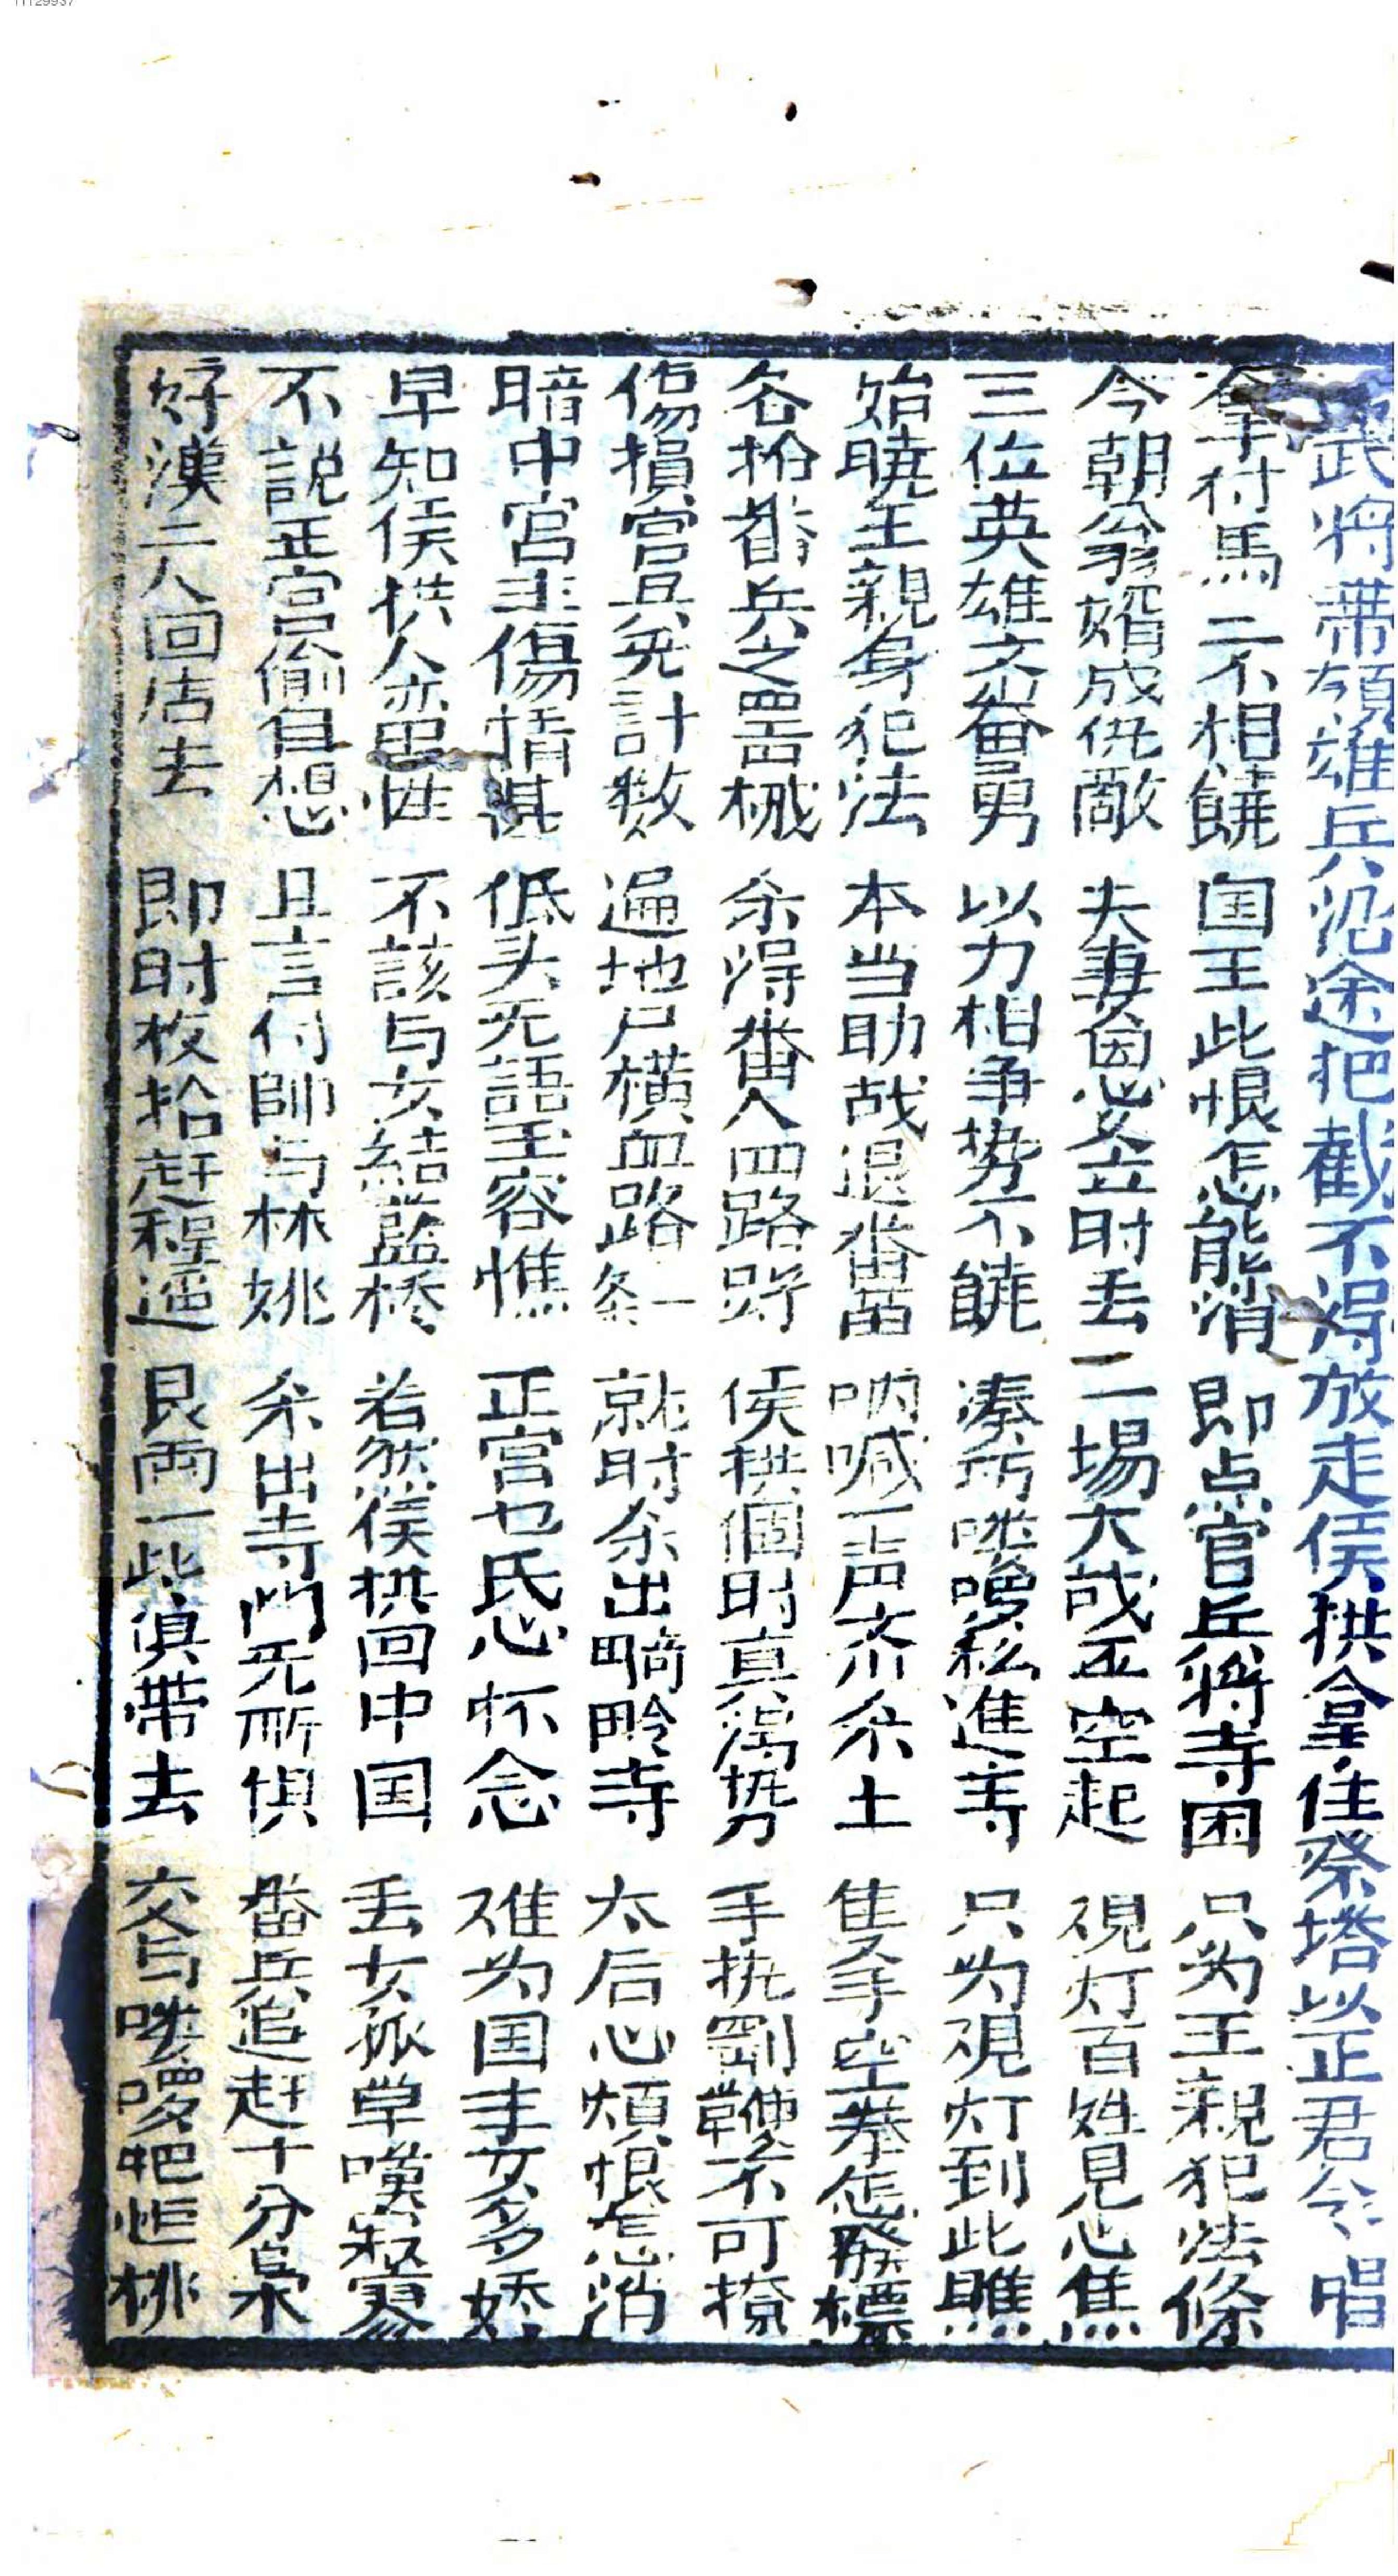 武將帶領雄兵沿途把截不淂放走侯拱拿住祭塔以正君令 唱
拿付馬二不相饒 国王此恨怎能消 即点官兵將寺困 只为王親犯法條
今朝翁婿成仇敵 夫妻恩爱立时丢 一場大战平空起 覌灯百姓見心焦
三位英雄文畨勇 以力相争势不饒 湊巧嘍啰私進寺 只为覌灯到此瞧
始曉王親身犯法 本当助战退畨苗 吶喊一声齐杀土 隻手空拳怎發標
各拾畨兵之噐械 杀淂畨人四路跑 侯拱個时真淂势 手执罰鞭不可撩
傷損官兵无計数 遍地尸横血路条 就时杀出畸岭寺 太后心煩恨怎消
暗中宫主傷情甚 低头无語玉容憔 正宫乜氏心怀念 难为国主女多嬌
早知侯拱人蛮性 不該与女結藍桥 若然侯拱回中国 丢女孤单嘆寂寥
不説正宫偷自想 且言付帥与林姚 杀出寺門无所惧 畨兵追赶十分梟
好漢二人回店去 即时收拾赶程遥 艮両一些俱帶去 交与嘍啰把担挑